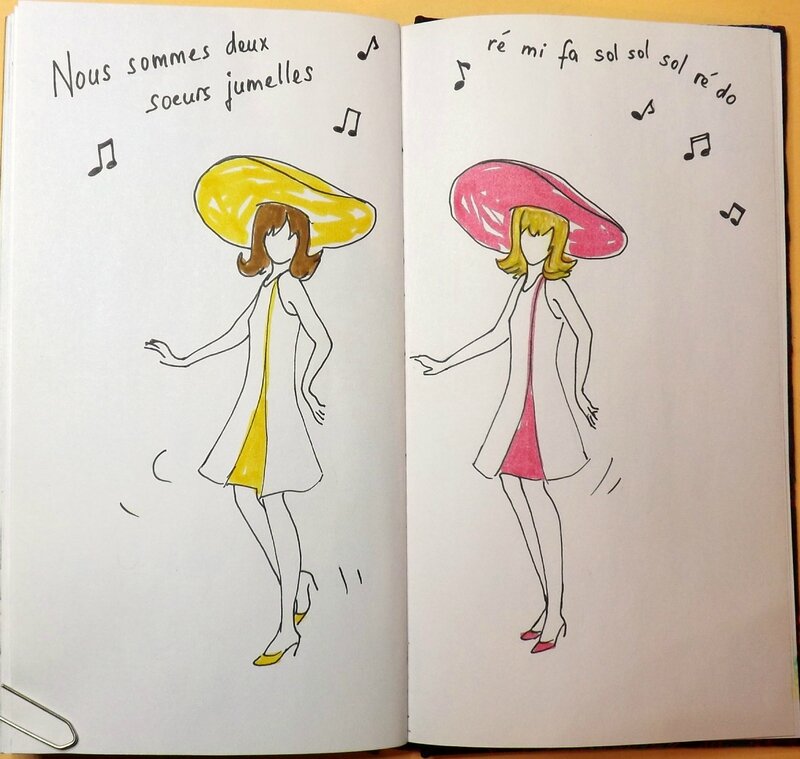 Nous sommes deux
soeurs jumelles
ré mi fa sol sol sol ré do